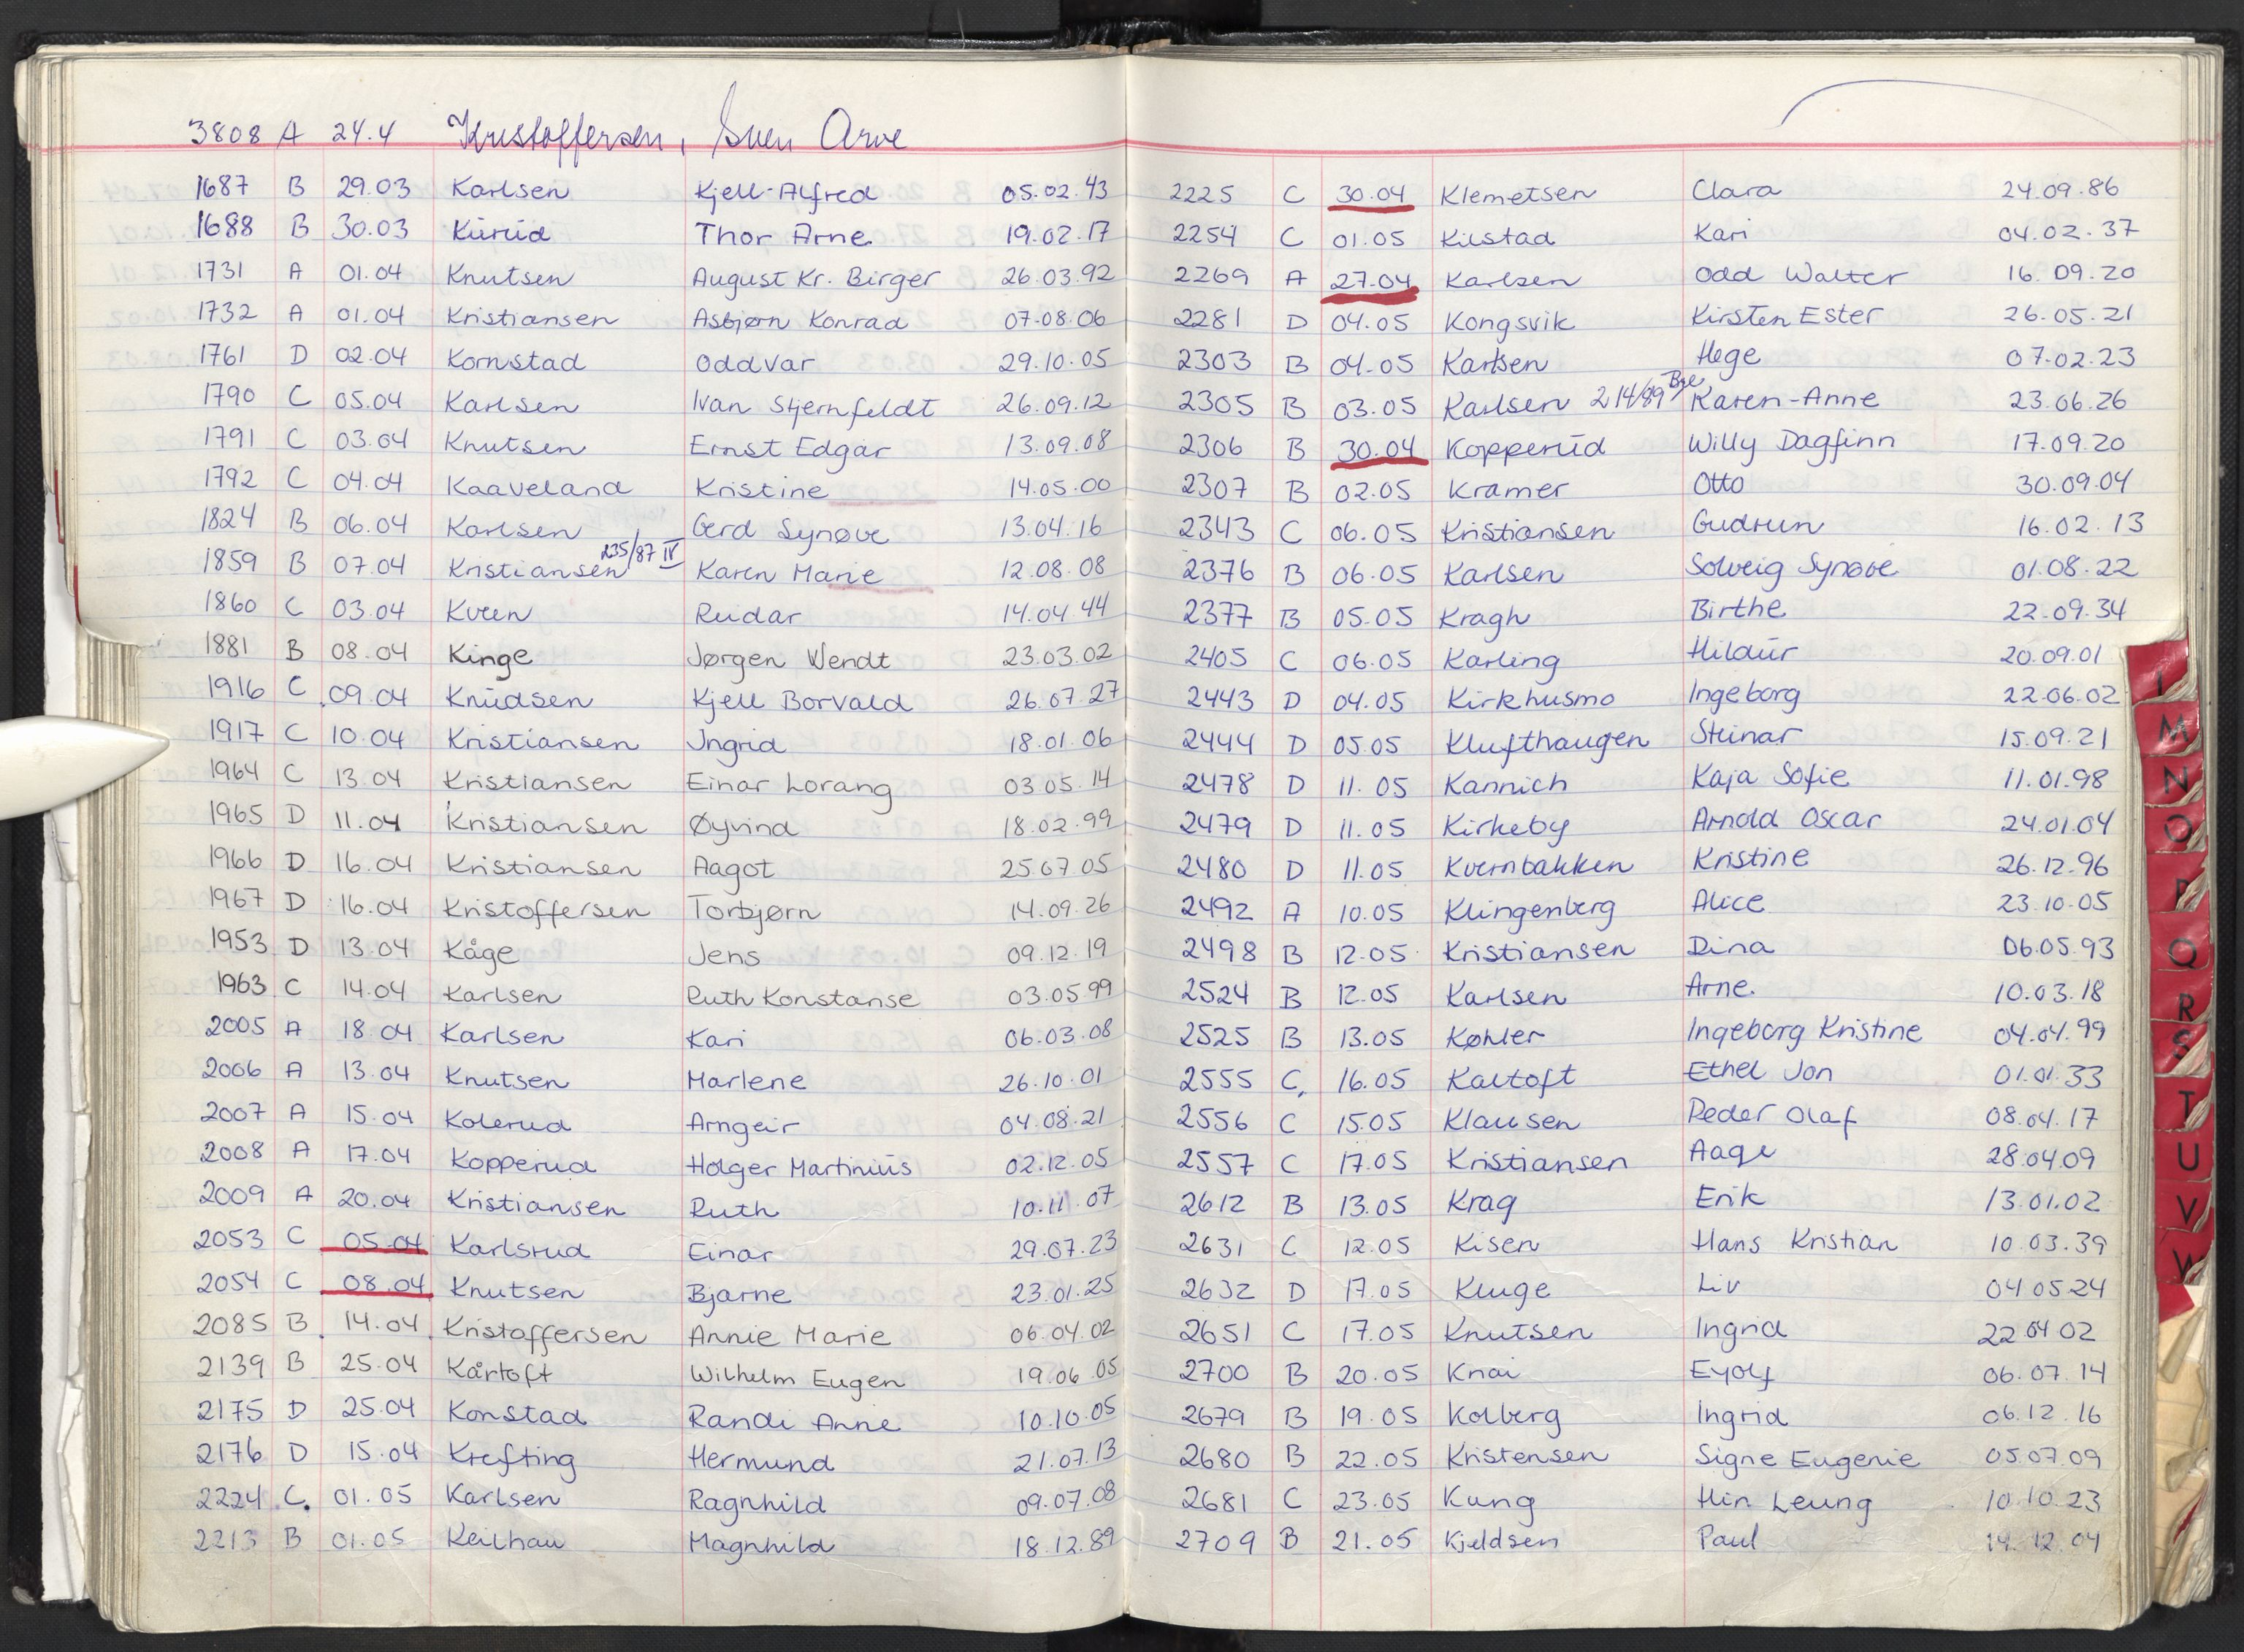 3808 A 24.4 Kristoffersen, Sven Arve
1687 B 29.03 Karlsen Kjell-Alfred 05.02.43
1688 B 30.03 Kürüd Thor Arne 19.02.17
1731 A 01.04 Knutsen August Kr. Birger 26.03.92
1732 A 01.04 Kristiansen Asbjørn Konrad 07.08.06
1761 D 02.04 Kornstad Oddvar 29.10.05
1790 C 05.04 Karlsen Ivan Stjernfeldt 26.09.12
1791 C 03.04 Knutsen Ernst Edgar 13.09.08
1792 C 04.04 Kaaveland Kristine 14.05.00
1824 B 06.04 Karlsen Gerd Synøve 13.04.16
1859 B 07.04 Kristiansen 235/87 IV Karen Marie 12.08.08
1860 C 03.04 Kveen Reidar 14.04.44
1881 B 08.04 Kinge Jørgen Wendt 23.03.02
1916 C 09.04 Knüdsen Kjell Borvald 26.07.27
1917 C 10.04 Kristiansen Ingrid 18.01.06
1964 C 13.04 Kristiansen Einar Lorang 03.05.14
1965 D 11.04 Kristiansen Øyvind 18.02.99
1966 D 16.04 Kristiansen Aagot 25.07.05
1967 D 16.04 Kristoffersen Torbjørn 14.09.26
1953 D 13.04 Kåge Jens 09.12.19
1963 C 14.04 Karlsen Ruth Konstanse 03.05.99
2005 A 18.04 Karlsen Kari 06.03.08
2006 A 13.04 Knutsen Marlene 26.10.01
2007 A 15.04 Kolerud Arngeir 04.08.21
2008 A 17.04 Kopperud Holger Martinius 02.12.05
2009 A 20.04 Kristiansen Ruth 10.11.07
2053 C 05.04 Karlsrud Einar 29.07.23
2054 C 08.04 Knutsen Bjarne 23.01.25
2085 B 14.04 Kristoffersen Annie Marie 06.04.02
2139 B 25.04 Kårtoft Wilhelm Eugen 19.06.05
2175 D 25.04 Konstad Randi Anne 10.10.05
2176 D 15.04 Krefting Hermund 21.07.13
2224 C. 01.05 Karlsen Ragnhild 09.07.08
2213 B 01.05 Keilhau Magnhild 18.12.89
2225 C 30.04 Klemetsen Clara 24.09.86
2254 C 01.05 Kilstad Kari 04.02.37
2269 A 27.04 Karlsen Odd Walter 16.09.20
2281 D 04.05 Kongsvik Kirsten Ester 26.05.21
2303 B 04.05 Karlsen Hege 07.02.23
2305 B 03.05 Karlsen 214/89 Karen-Anne 23.06.26
2306 B 30.04 Kopperüd Willy Dagfinn 17.09.20
2307 B 02.05 Kramer Otto 30.09.04
2343 C 06.05 Kristiansen Gudrun 16.02.13
2376 B 06.05 Karlsen Solveig Synøve 01.08.22
2377 B 05.05 Kragh Birthe 22.09.34
2405 C 06.05 Karling Hildür 20.09.01
2443 D 04.05 Kirkhusmo Ingeborg 22.06.02
2444 D 05.05 Klufthaugen Steinar 15.09.21
2478 D 11.05 Kannich Kaja Sofie 11.01.98
2479 D 11.05 Kirkeby Arnold Oscar 24.01.04
2480 D 11.05 Kvernbakken Kristine 26.12.96
2492 A 10.05 Klingenberg Alice 23.10.05
2498 B 12.05 Kristiansen Dina 06.05.93
2524 B 12.05 Karlsen Arne 10.03.18
2525 B 13.05 Køhler Ingeborg Kristine 04.04.99
2555 C 16.05 Kaltoft Ethel Jon 01.01.33
2556 C 15.05 Klausen Peder Olaf 08.04.17
2557 C 17.05 Kristiansen Aage 28.04.09
2612 B 13.05 Krag Erik 13.01.02
2631 C 12.05 Kisen Hans Kristian 10.03.39
2632 D 17.05 Kluge Liv 04.05.24
2651 C 17.05 Knutsen Ingrid 22.04.02
2700 B 20.05 Knai Eyolf 06.07.14
2679 B 19.05 Kolberg Ingrid 06.12.16
2680 B 22.05 Kristensen Signe Eugenie 05.07.09
2681 C 23.05 Kung Hin Leung 10.10.23
2709 B 21.05 Kjeldsen Paul 14.12.04
M
N
O
P
Q
R
S
T
U
V
W